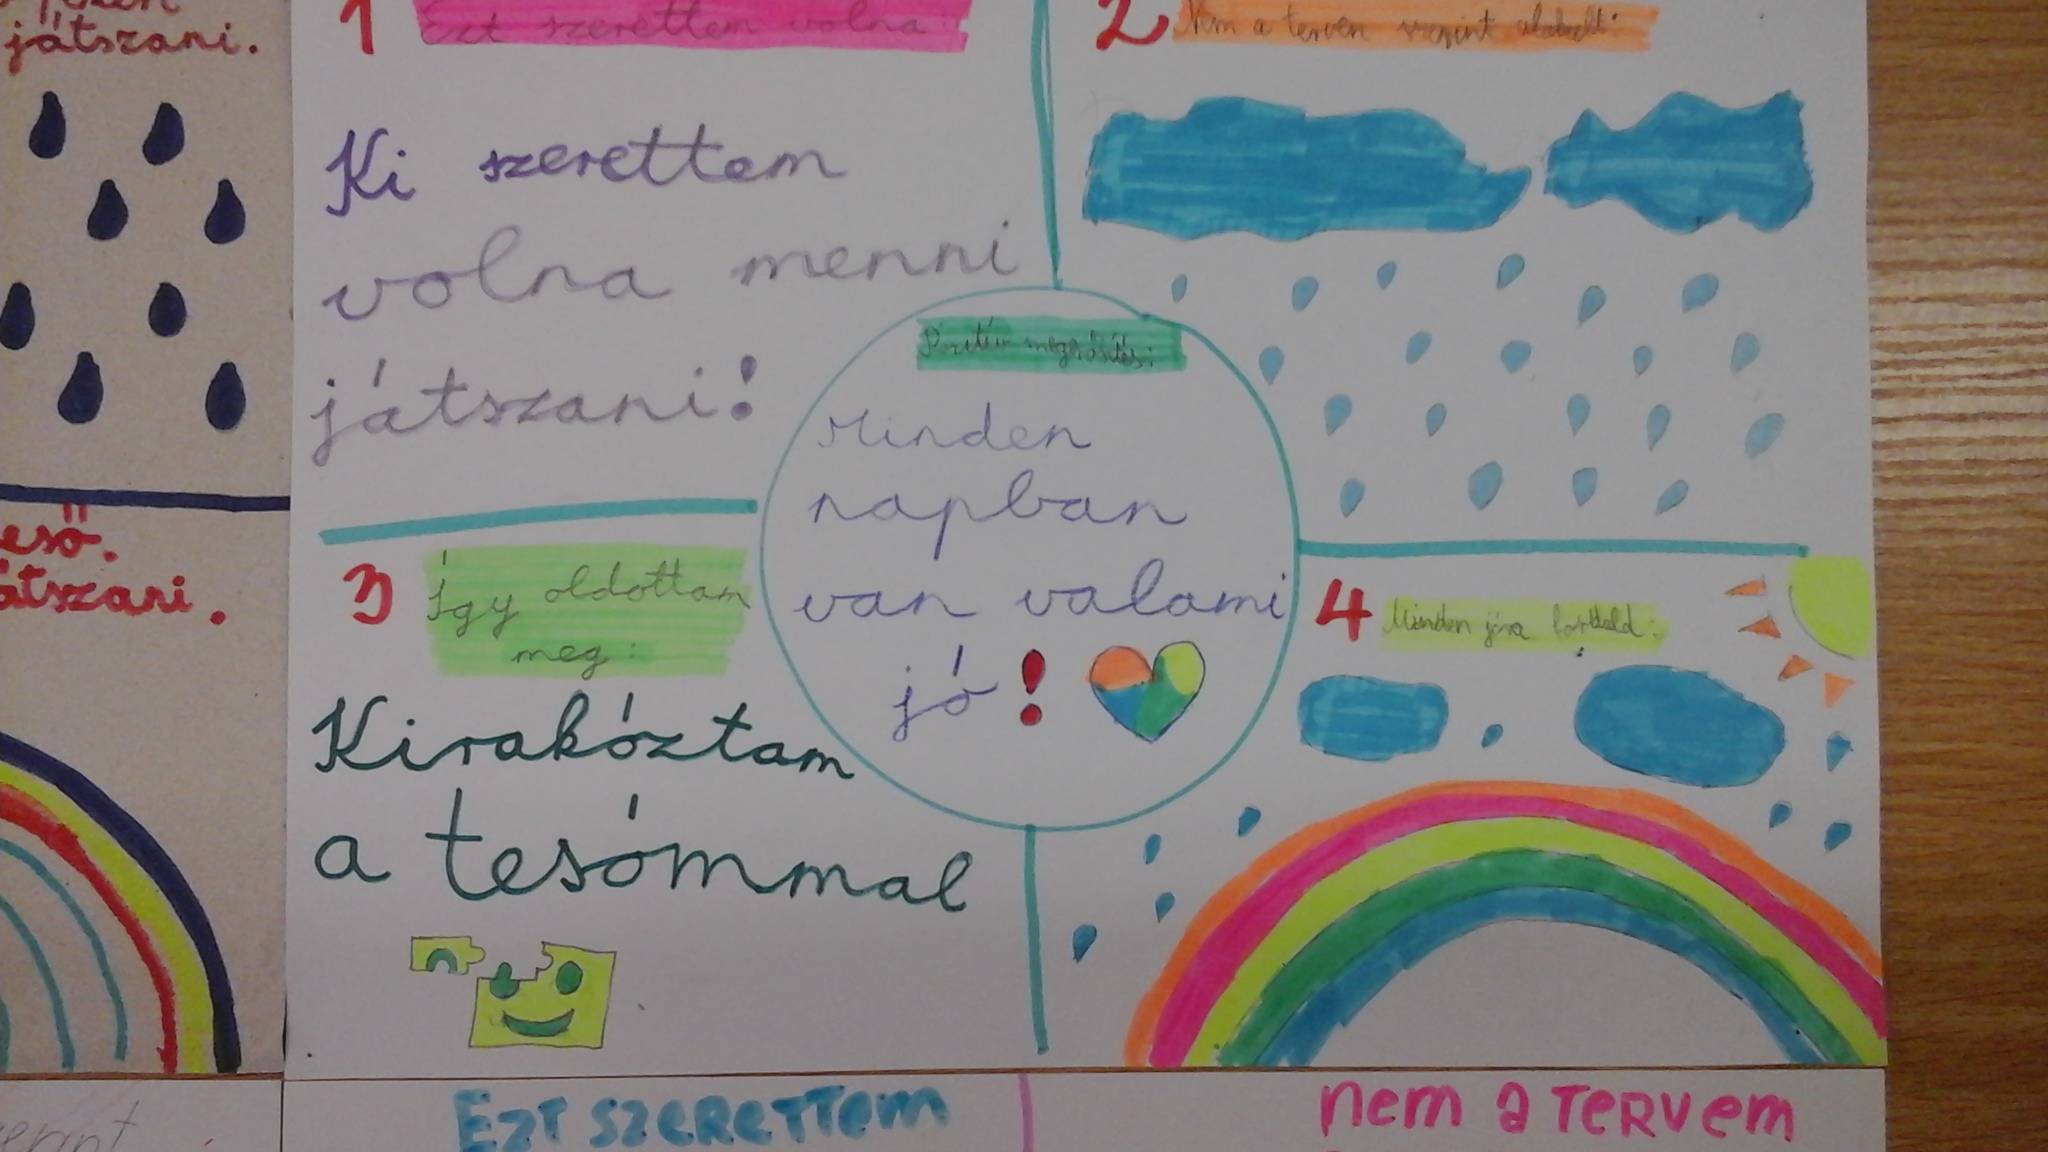 játszani.
1 Ezt szerettem volna:
Ki szerettem
volna menni
játszani!
2 Nem a tervem szerint alakult:
Pozitív megerősítés:
Minden
napban
van valami
jó!
3 Így oldottam
meg:
Kirakóztam
a tesómmal
4 Minden jóra fordult:
eső.
átszani.
EZT SZERETTEM
nem a TERVEM